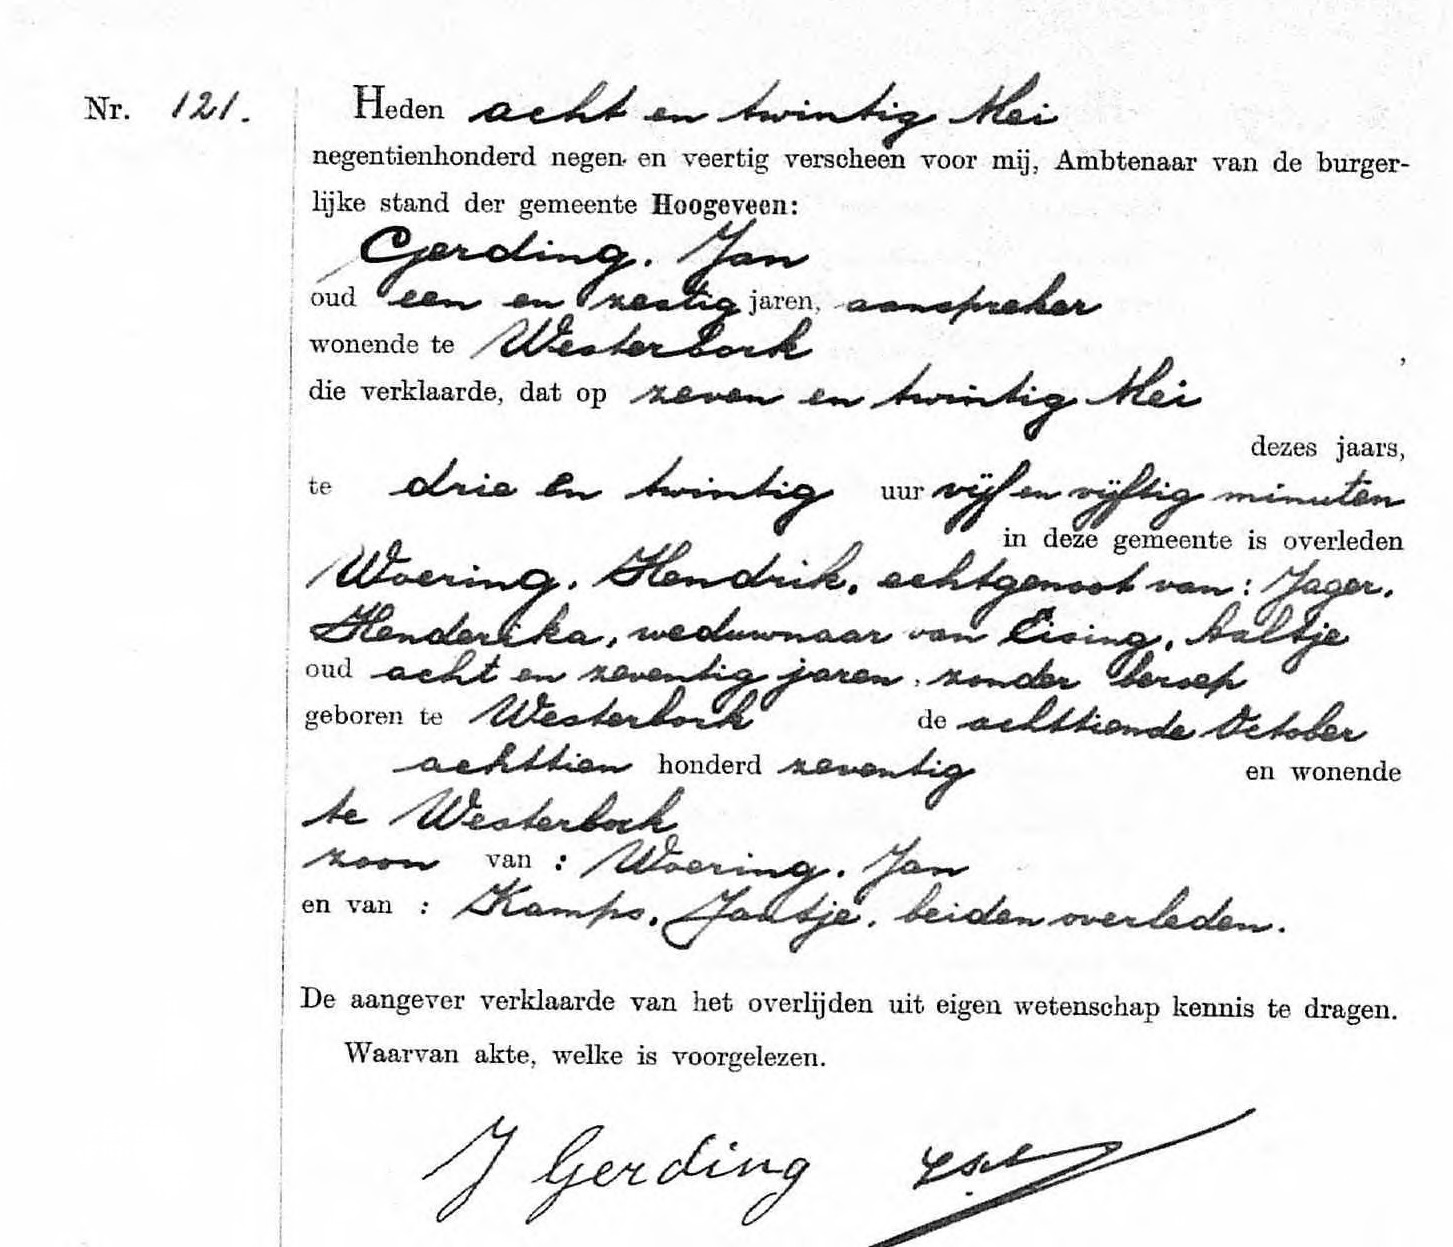 Nr. 121. Heden acht en twintig Mei
negentienhonderd negen en veertig verscheen voor mij, Ambtenaar van de burger-
lijke stand der gemeente Hoogeveen:
Gerding. Jan
oud een en zestig jaren, aanspreker
wonende te Westerbork
die verklaarde, dat op zeven en twintig Mei
dezes jaars,
te drie en twintig uur vijf en vijftig minuten
in deze gemeente is overleden
Woering. Hendrik, echtgenoot van: Jager.
Henderika, weduwnaar van Eising, Aaltje
oud acht en zeventig jaren, zonder beroep
geboren te Westerbork de achttiende October
achttien honderd zeventig en wonende
te Westerbork
zoon van : Woering. Jan
en van : Kamps. Jantje, beiden overleden.
De aangever verklaarde van het overlijden uit eigen wetenschap kennis te dragen.
Waarvan akte, welke is voorgelezen.
J Gerding